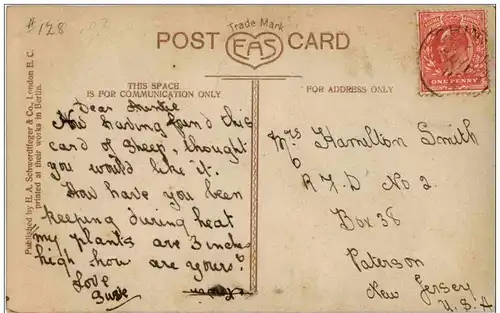 #128
Trade Mark
POST CARD
EAS
THIS SPACE
IS FOR COMMUNICATION ONLY
FOR ADDRESS ONLY
ONE PENNY
Published by H. A. Schwerdtfeger & Co., London E. C.
printed at their works in Berlin.
Dear Auntie
Now having found this
card of Sheep, thought
you would like it.
How have you been
keeping during heat
my plants are 3 inches
high how are yours?
Love
Susie
Mrs Hamilton Smith
R.F.D No 2.
Box 38
Paterson
New Jersey
U.S.A